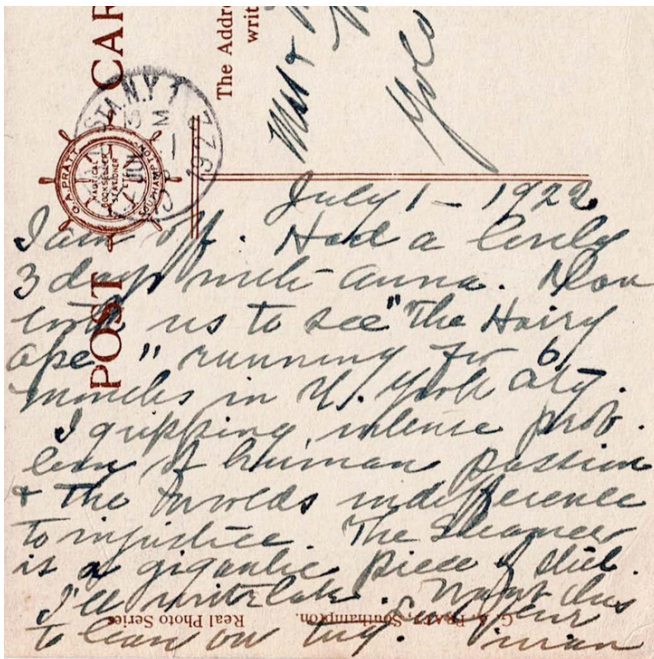 POST CAR
The Addr
writ
Mrs &
Yolo
G.A. PRATT
NAUTICAL
BOOKSELLER
STATIONER
SOUTHAMPTON
N.Y.
JUL
M
192
July 1 - 1922
I am off. Had a lovely
3 days with Anna. Alan
took us to see "The Hairy
Ape" running for 6
months in N. York City.
A gripping intense prob-
lem of human passion
& the worlds indifference
to injustice. The steamer
is a gigantic piece of steel.
I'll write later. Want this
to leave on tug.
G. A. PRATT, Southampton.
Real Photo Series